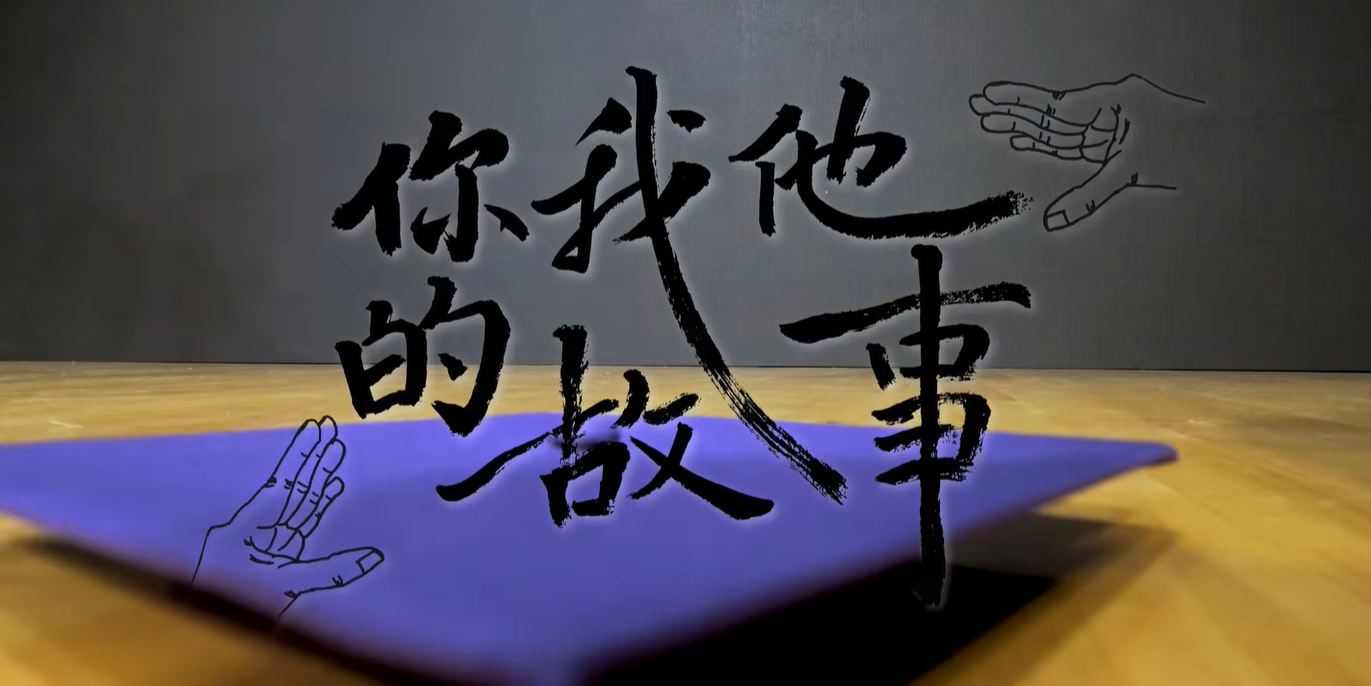 你我他
的故事